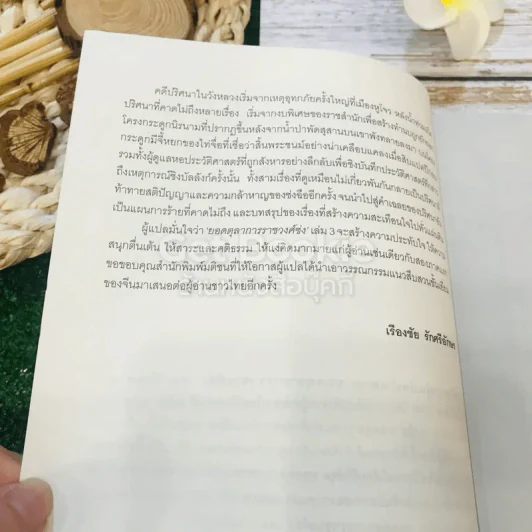 คดีปริศนาในวังหลวงเริ่มจากเหตุอุทกภัยครั้งใหญ่ที่เมืองหูโจว หลังน้ำท่วม
ปริศนาที่คาดไม่ถึงหลายเรื่อง เริ่มจากงบพิเศษของราชสำนักเพื่อสร้างทำนบถูก
โครงกระดูกนิรนามที่ปรากฏขึ้นหลังจากน้ำป่าพัดสุสานบนเขาพังทลายลงมา
กระดูกมีจี้หยกของไท่จื่อที่เชื่อว่าสิ้นพระชนม์อย่างน่าเคลือบแคลงเมื่อสิบแปดปี
รวมทั้งผู้ดูแลหอประวัติศาสตร์ที่ถูกสังหารอย่างลึกลับเพื่อชิงบันทึกประวัติศาสตร์ที่
ถึงเหตุการณ์ชิงบัลลังก์ครั้งนั้น ทั้งสามเรื่องที่ดูเหมือนไม่เกี่ยวพันกันกลายเป็น
ท้าทายสติปัญญาและความกล้าหาญของซ่งฉืออีกครั้ง จนนำไปสู่คำเฉลยของ
เป็นแผนการร้ายที่คาดไม่ถึง และบทสรุปของเรื่องที่สร้างความสะเทือนใจไป
ผู้แปลมั่นใจว่า 'ยอดตุลาการราชวงศ์ซ่ง' เล่ม 3 จะสร้างความประทับใจ ให้ความ
สนุกตื่นเต้น ให้สาระและคติธรรม ให้แง่คิดมากมายแก่ผู้อ่านเช่นเดียวกับสองภาคแรก
ขอขอบคุณสำนักพิมพ์มติชนที่ให้โอกาสผู้แปลได้นำเอาวรรณกรรมแนวสืบสวนชั้นเยี่ยม
ของจีนมาเสนอต่อผู้อ่านชาวไทยอีกครั้ง
เรืองชัย รักศรีอักษร